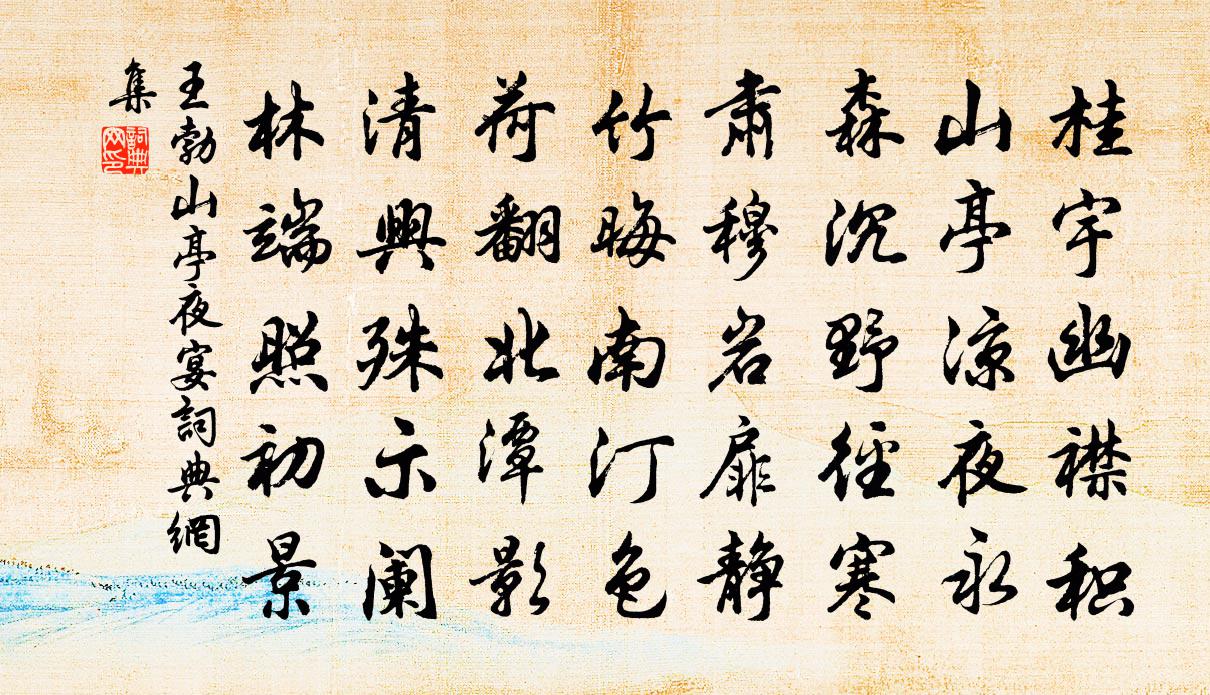 桂宇幽襟积
山亭涼夜永
森沉野徑寒
肅穆岩扉静
竹晦南汀色
荷翻北潭影
清興殊示阑
林端照初景
王勃山亭夜宴詞典網
集
詞典网印